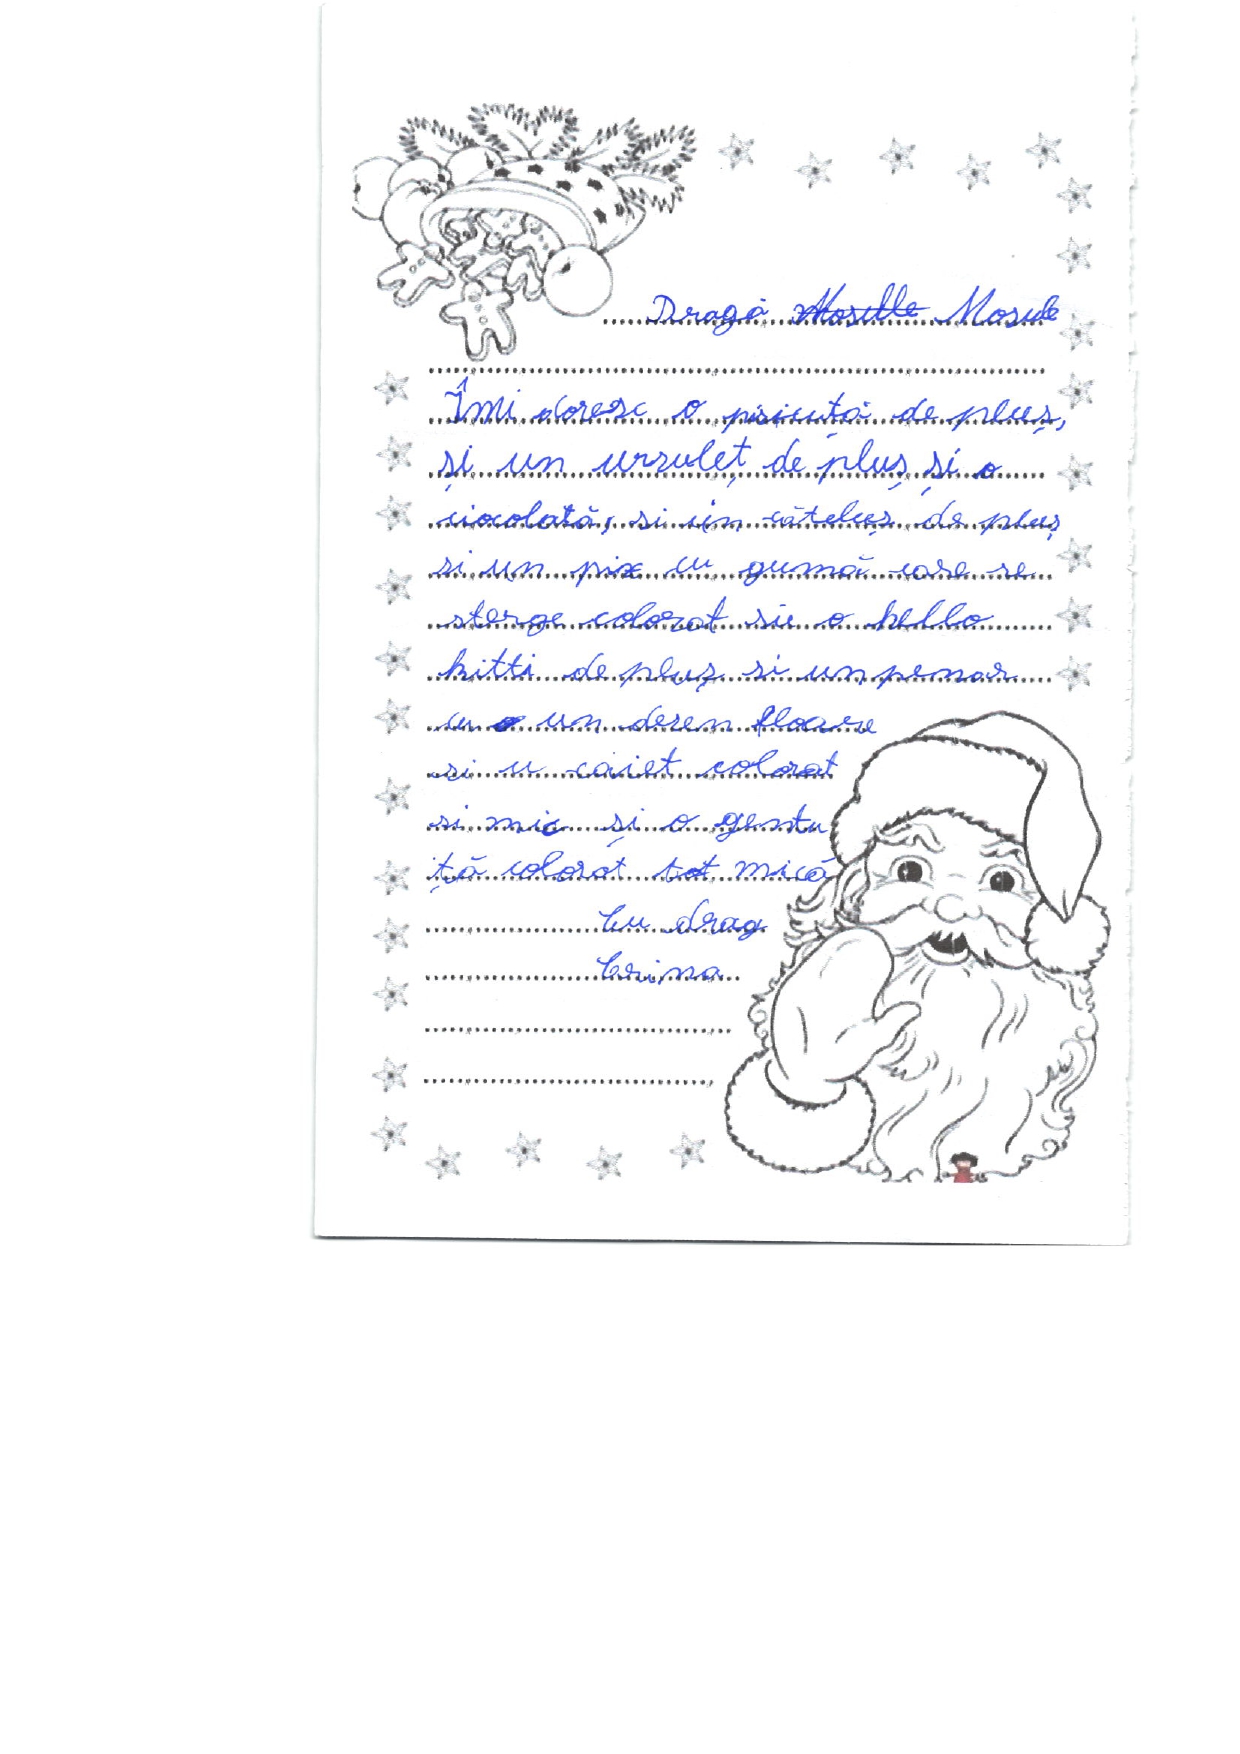 Dragă Mosule
Îmi doresc o pisicuță de pluș,
și un ursuleț de pluș și o
ciocolată, si un cățeluș de pluș
si un pix cu gumă care se
sterge colorat si o hello
kitti de pluș si un penar
cu un desen floare
si u caiet colorat
si mic și o gentu
ță colorat tot mică
Cu drag
Crina